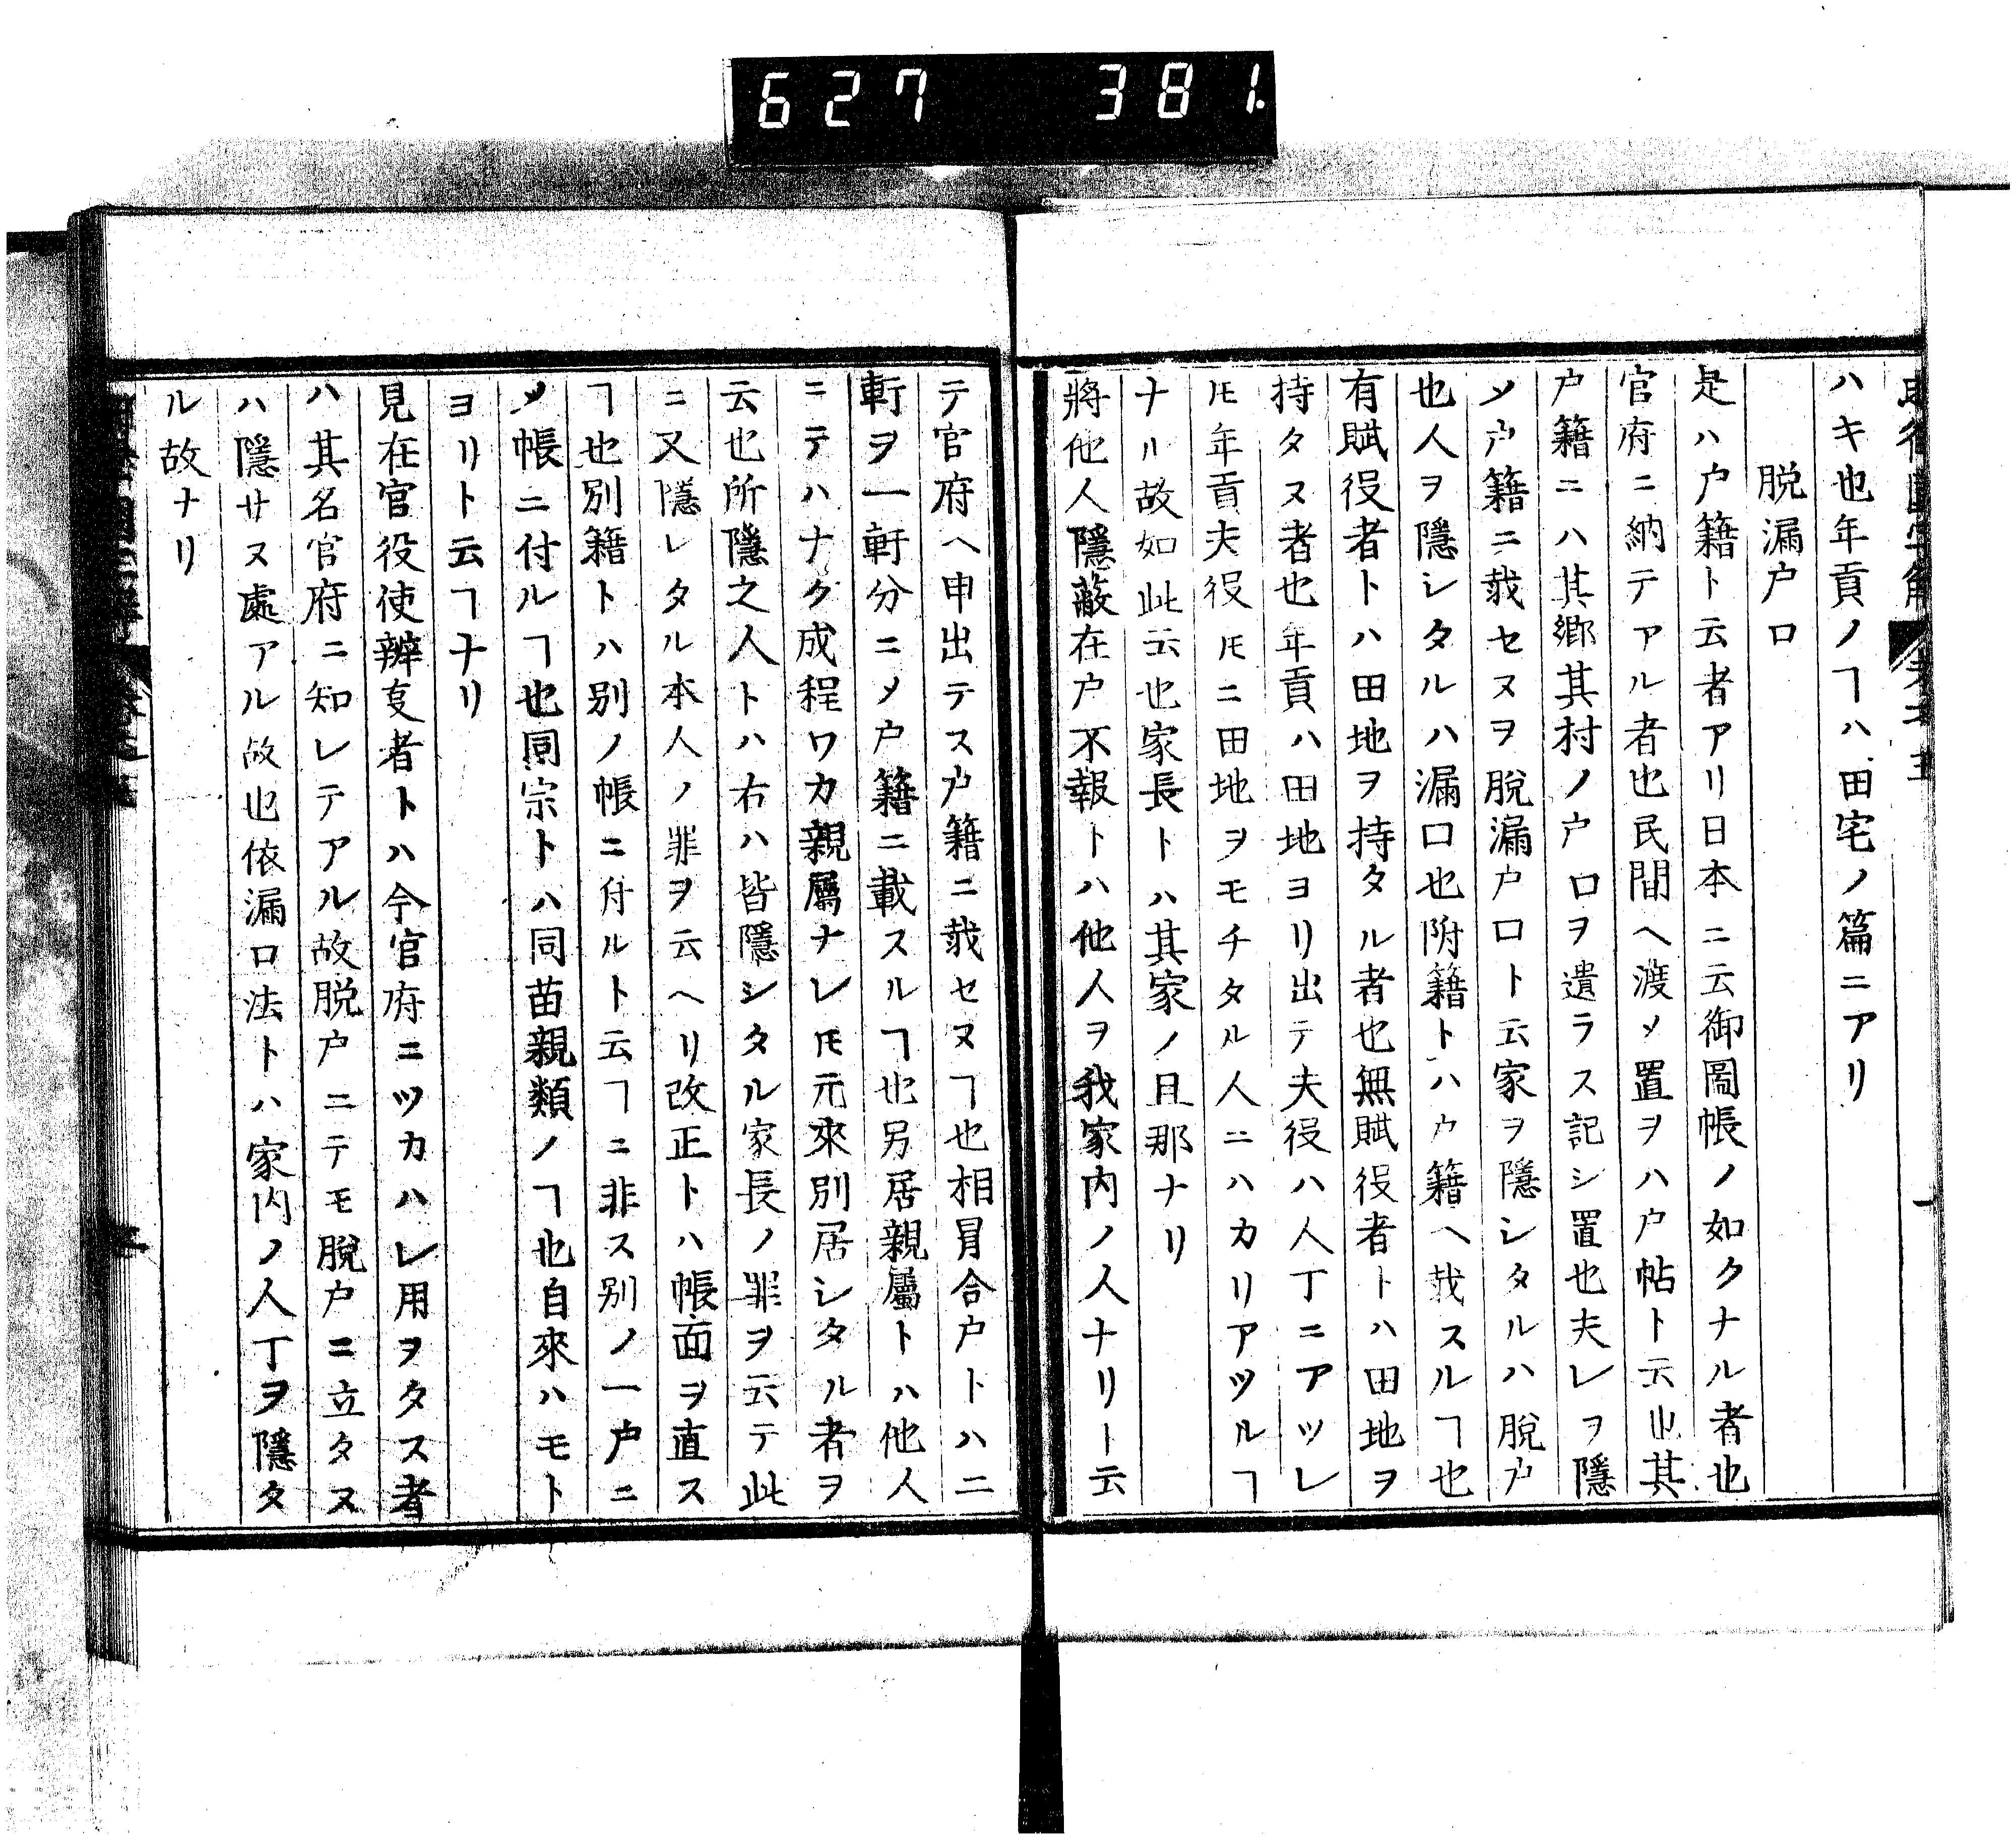 627 381.
ハキ也年貢ノヿハ田宅ノ篇ニアリ
脱漏戸口
是ハ戸籍ト云者アリ日本ニ云御圖帳ノ如クナル者也
官府ニ納テアル者也民間ヘ渡メ置ヲハ戸帖ト云也其
戸籍ニハ其郷其村ノ戸口ヲ遺ラス記シ置也夫レヲ隱
メ戸籍ニ載セヌヲ脱漏戸口ト云家ヲ隱シタルハ脱戸
也人ヲ隱シタルハ漏口也附籍トハ戸籍ヘ載スルヿ也
有賦役者トハ田地ヲ持タル者也無賦役者トハ田地ヲ
持タヌ者也年貢ハ田地ヨリ出テ夫役ハ人丁ニアツレ
𪜈年貢夫役𪜈ニ田地ヲモチタル人ニハカリアツルヿ
ナル故如此云也家長トハ其家ノ且那ナリ
將他人隱蔽在戸不報トハ他人ヲ我家内ノ人ナリト云
テ官府ヘ申出テス戸籍ニ載セヌヿ也相冐合戸トハ二
軒ヲ一軒分ニメ戸籍ニ載スルヿ也另居親屬トハ他人
ニテハナク成程ワカ親屬ナレ𪜈元來別居シタル者ヲ
云也所隱之人トハ右ハ皆隱シタル家長ノ罪ヲ云テ此
ニ又隱レタル本人ノ罪ヲ云ヘリ改正トハ帳面ヲ直ス
ヿ也別籍トハ別ノ帳ニ付ルト云ヿニ非ス別ノ一戸ニ
メ帳ニ付ルヿ也同宗トハ同苗親類ノヿ也自來ハモト
ヨリト云ヿナリ
見在官役使辨叓者トハ今官府ニツカハレ用ヲタス者
ハ其名官府ニ知レテアル故脱戸ニテモ脱戸ニ立タヌ
ハ隱サヌ處アル故也依漏口法トハ家内ノ人丁ヲ隱タ
ル故ナリ